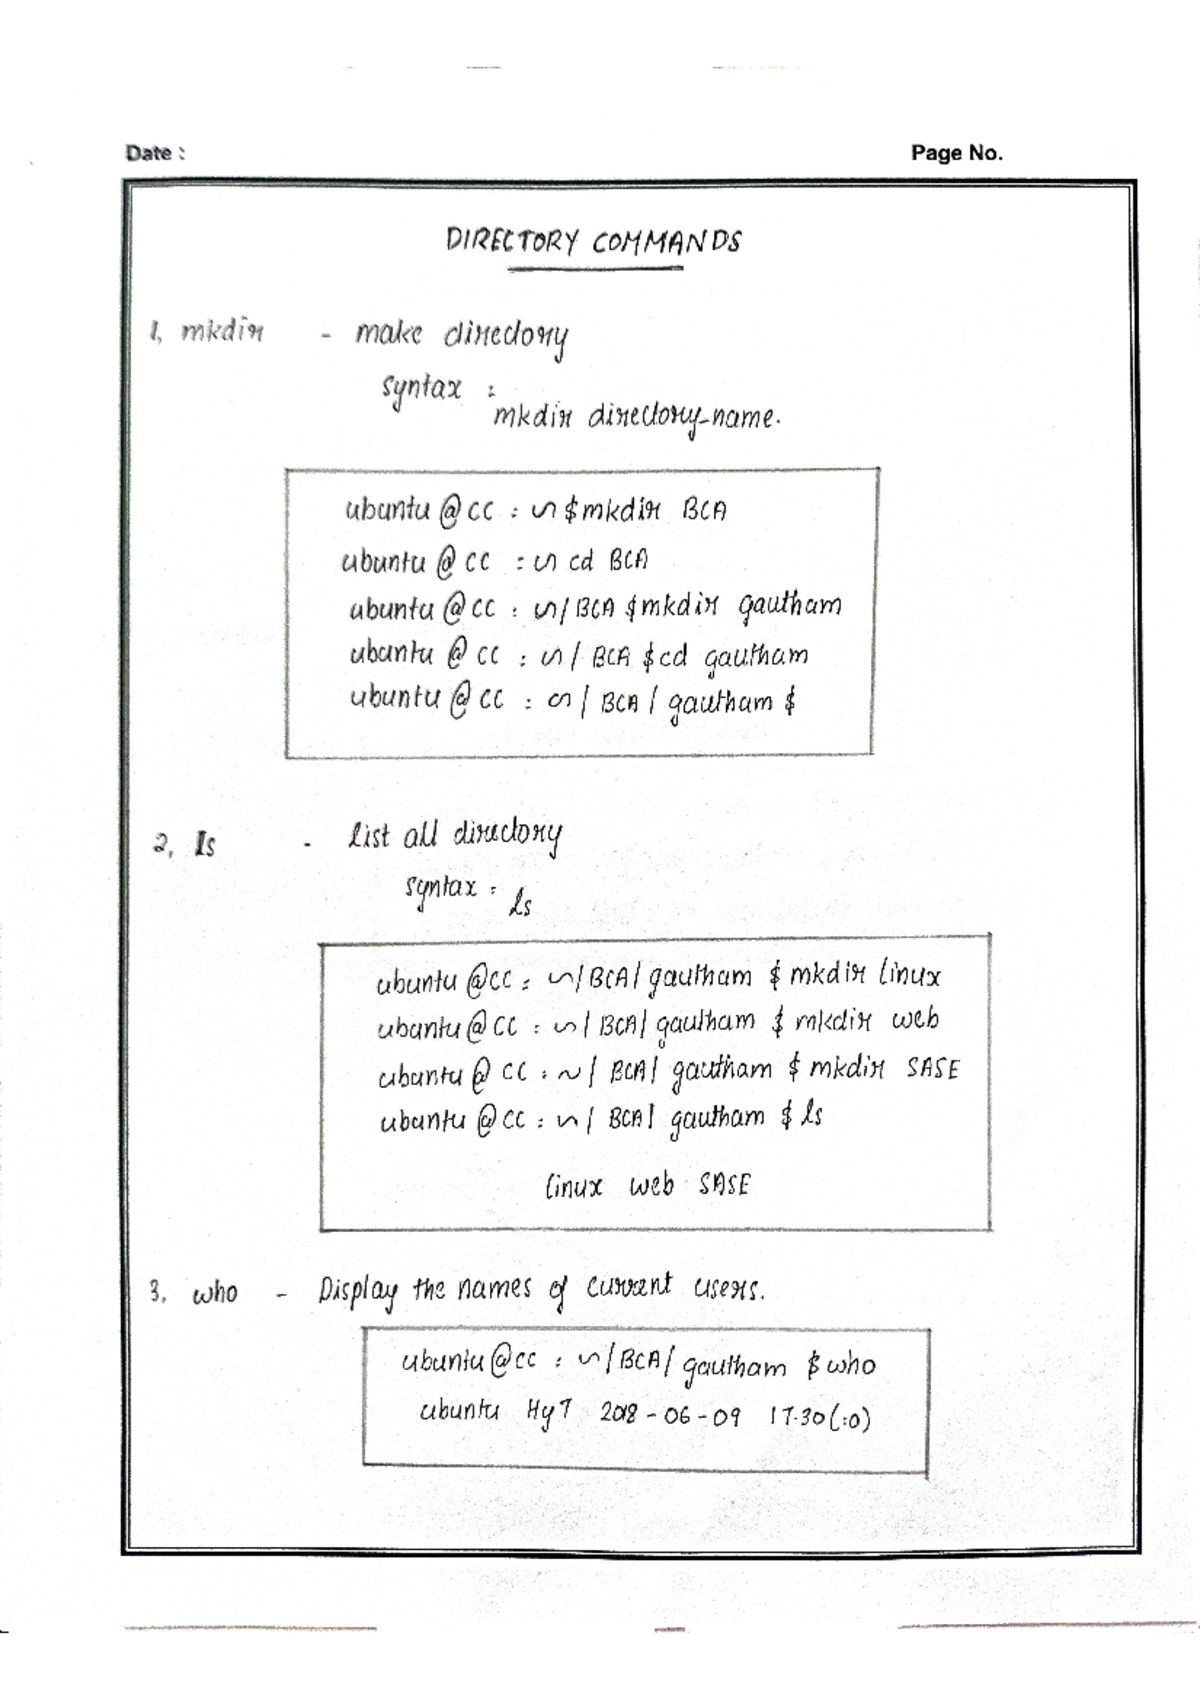 Date :
Page No.
DIRECTORY COMMANDS
1, mkdir - make directory
syntax :
mkdir directory-name.
ubuntu @ CC : ~ $ mkdir BCA
ubuntu @ CC : ~ cd BCA
ubuntu @ CC : ~/ BCA $ mkdir gautham
ubuntu @ CC : ~/ BCA $ cd gautham
ubuntu @ CC : ~/ BCA / gautham $
2, ls - list all directory
syntax :
ls
ubuntu @CC : ~/BCA/ gautham $ mkdir linux
ubuntu @ CC : ~/ BCA/ gautham $ mkdir web
ubuntu @ CC : ~/ BCA/ gautham $ mkdir SASE
ubuntu @ CC : ~/ BCA/ gautham $ ls
linux web SASE
3, who - Display the names of current users.
ubuntu@cc : ~/BCA/ gautham $ who
ubuntu Hy7 2018-06-09 17.30(:0)